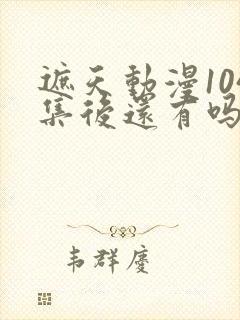 遮天動漫104
集後還有吗
韦群慶